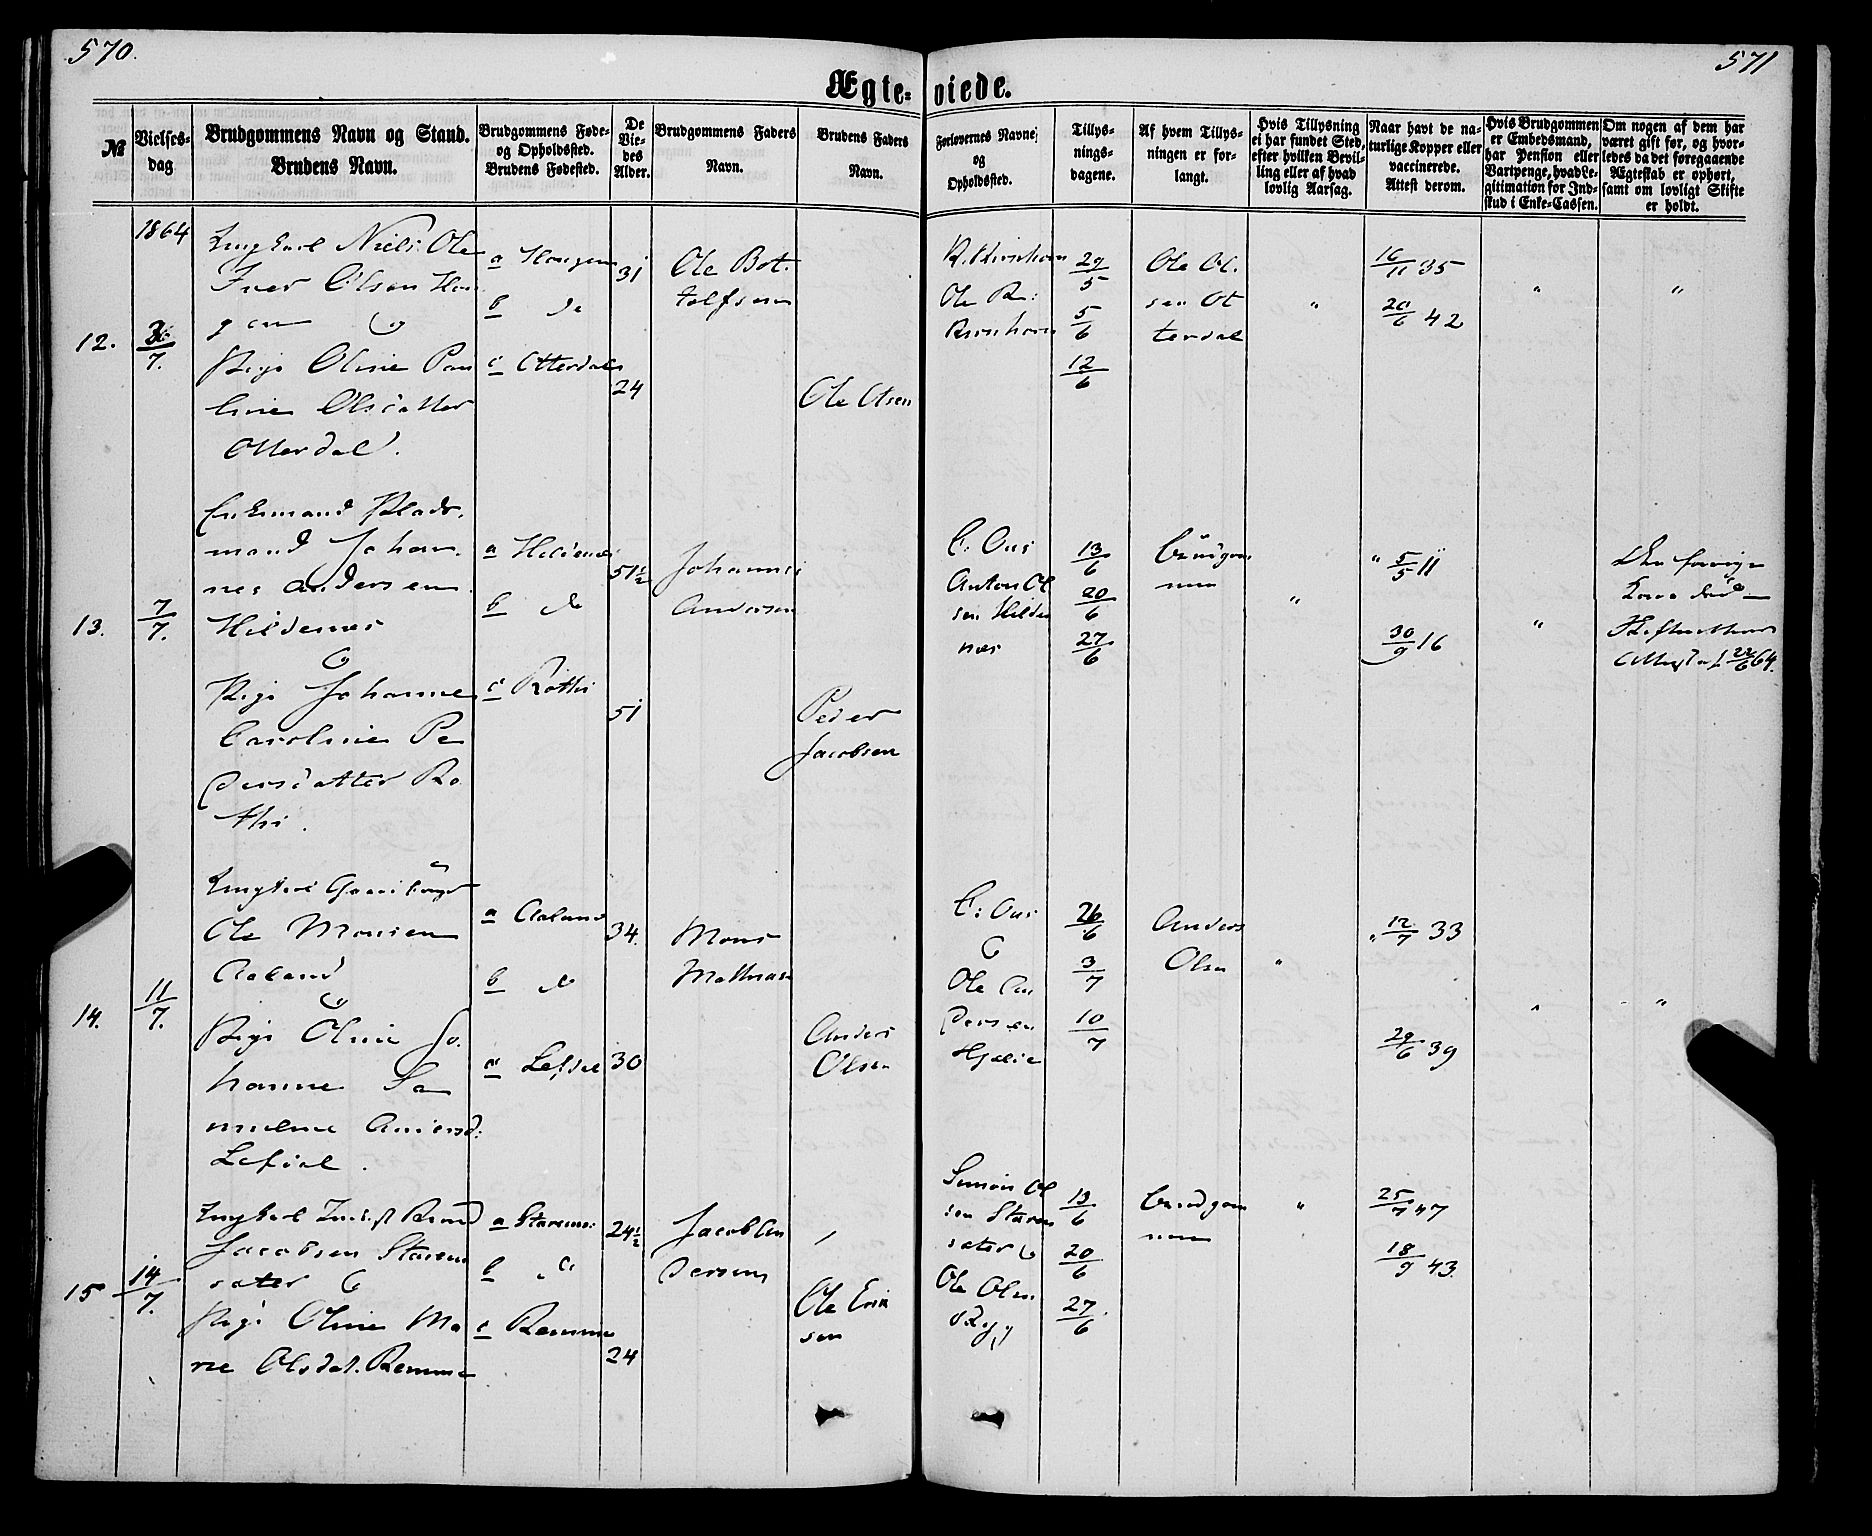 570.
571
Ægte- viede.
№
Vielses-
dag
Brudgommens Navn og Stand.
Brudens Navn.
Brudgommens Føde-
og Opholdssted.
Brudens Fødested.
De
Vie-
des
Alder.
Brudgommens Faders
Navn.
Brudens Faders
Navn.
Forlovernes Navne
og
Opholdssted.
Tillys-
nings-
dagene.
Af hvem Tillys-
ningen er for-
langt.
Hvis Tillysning
ei har fundet Sted,
efter hvilken Bevil-
ling eller af hvad
lovlig Aarsag.
Naar havt de na-
turlige Kopper eller
vaccinerede.
Attest derom.
Hvis Brudgommen
er Embedsmand,
har Pension eller
Vartpenge, hvad Le-
gitimation for Ind-
skud i Enke-Cassen.
Om nogen af dem har
været gift før, og hvor-
ledes da det foregaaende
Ægteskab er ophørt,
samt om lovligt Skifte
er holdt.
1864
12.
7.
Ungkarl Niels Ole
Iver Olsen Hau
gen og
Pige Oline Pau
line Olsdatter
Otterdal.
a Haugen
b do
c Otterdal
31
24
Ole Bot.
tolfsen
Ole Olsen
Ole
29/5
5/6
12/6
Ole Ol.
sen Ot
terdal
"
16/11 35
20/6 42
"
"
13.
7/7.
Enkemand Plads.
mand Johan.
nes Andersen
Hildenes
og
Pige Johanne
Caroline Pe
dersdatter Ro
thi.
a Hildenes
b do
c Rothi
51½
51
Johannes
Andersen
Peder
Jacobsen
Anton Ol
sen Hilde
nes
13/6
20/6
27/6
Brudgom
men
"
" 5/5 11
30/9 16
"
Den forrige
Kone død
22/6 64.
14.
11/7.
Ungkarl
Ole Monsen
Aaland
og
Pige Oline Jo.
hanne Sa
mueline Andersd:
Lefdal.
a Aaland
b do
c Lefdal
34.
30
Mons
Mathias
Anders
Olsen
Ole An
dersen
Hjelle
26/6
3/7
10/7
Anders
Olsen
"
" 12/7 33
29/6 39
"
"
15
14/7.
Ungkarl
Jacobsen Staven
sæter og
Pige Oline Ma
rie Olsdat. Remme
a
b do
c Remme
24½
24
Jacob An
dersen
Ole Erik
sen
Simon Ol
sen Staven
sæter og
Ole Olsen
Rygg
13/6
20/6
27/6
Brudgom
men
"
25/7 47
18/9 43.